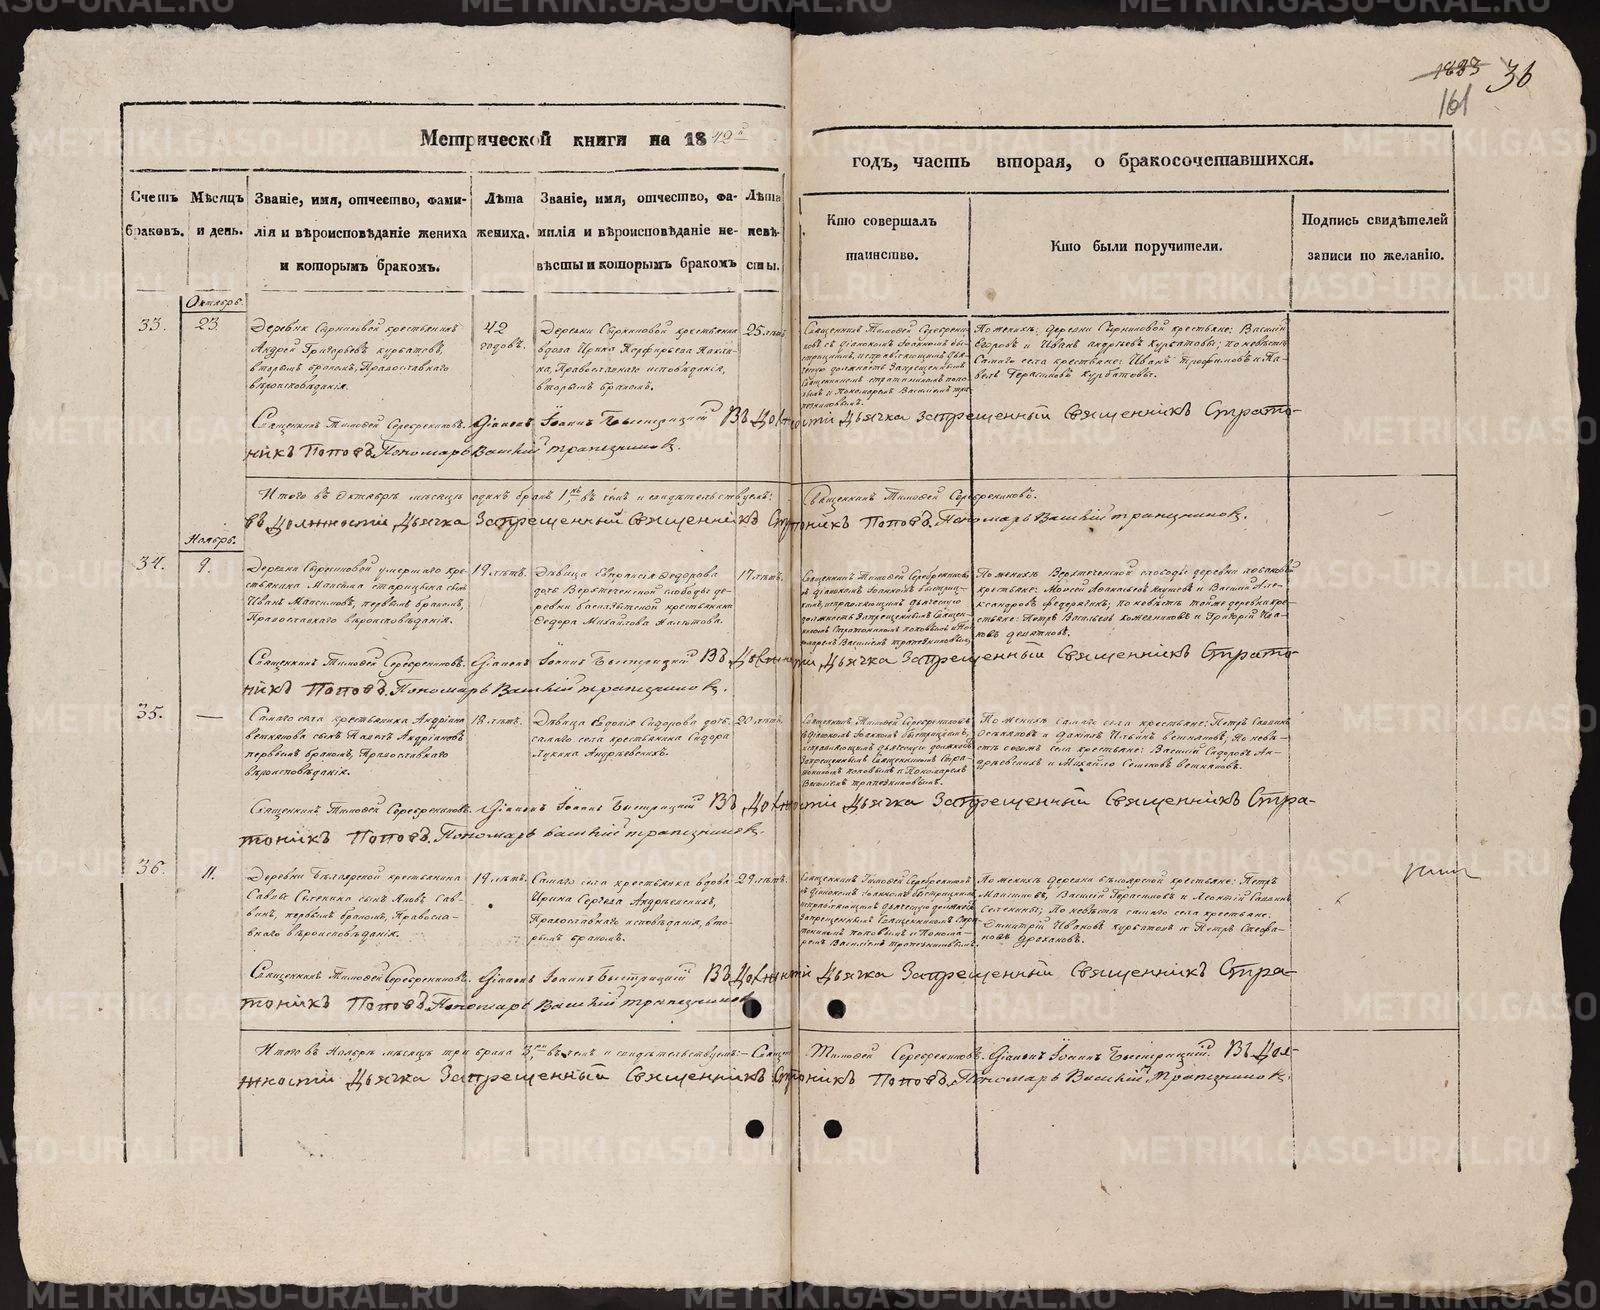 1883 36
161
Метрической книги на 1842й
годъ, часть вторая, о бракосочетавшихся.
Счетъ браковъ.
Мѣсяцъ и день.
Званіе, имя, отчество, фами-
лія и вѣроисповѣданіе жениха
и которымъ бракомъ.
Лѣта
жениха.
Званіе, имя, отчество, фа-
милія и вѣроисповѣданіе не-
вѣсты и которымъ бракомъ
Лѣта
невѣ-
сты.
Кто совершалъ
таинство.
Кто были поручители.
Подпись свидѣтелей
записи по желанію.
Октябрь.
33.
23.
Деревни Сыркиновой крестьянинъ
Андрей Григорьевъ Курбатовъ,
вторымъ бракомъ, Православнаго
вѣроисповѣданія.
42
годовъ.
Деревни Сыркиновой крестьянина
вдова Ирина Порфирьева
Православнаго исповѣданія,
вторымъ бракомъ.
25 лѣтъ
Священникъ Тимофей Серебрени-
ковъ съ діакономъ Іоанномъ
исправляющимъ дья-
ческую должность Запрещеннымъ
Священникомъ Стратоникомъ Попо-
вымъ и Пономаремъ Василіемъ Тра-
пезниковымъ.
По женихѣ: деревни Сыркиновой крестьяне: Василій
и Иванъ Андреевъ Курбатовы; по невѣстѣ
Самаго села крестьяне: Иванъ Трофимовъ и Па-
велъ Герасимовъ Курбатовы.
Священникъ Тимофей Серебрениковъ. Діаконъ Іоаннъ Быстрицкій Въ Должности Дьячка Запрещенный Священникъ Страто-
никъ Поповъ. Пономарь Василій Трапезниковъ.
Итого въ Октябрѣ мѣсяцѣ одинъ бракъ 1, въ чемъ и свидѣтельствуемъ: Священникъ Тимофей Серебрениковъ.
въ Должности Дьячка Запрещенный Священникъ Стратоникъ Поповъ. Пономарь Василій Трапезниковъ.
Ноябрь.
34.
9.
Деревни Сыркиновой умершаго кре-
стьянина Максима Старицына сынъ
Иванъ Максимовъ, первымъ бракомъ,
Православнаго вѣроисповѣданія.
19 лѣтъ.
Дѣвица Евпраксія Федорова
дочь Верхтеченской слободы де-
ревни крестьянина
Федора Михайлова
17 лѣтъ.
Священникъ Тимофей Серебрениковъ
съ діакономъ Іоанномъ Быстриц-
кимъ, исправляющимъ дьяческую
должность Запрещеннымъ Священ-
никомъ Стратоникомъ Поповымъ и По-
номаремъ Василіемъ Трапезниковымъ.
По женихѣ Верхтеченской слободы деревни
крестьяне: и Василій Але-
ксандровъ; по невѣстѣ тойже деревни кре-
стьяне: Петръ Васильевъ Кожевниковъ и Григорій Ива-
новъ
Священникъ Тимофей Серебрениковъ. Діаконъ Іоаннъ Быстрицкій Въ Должности Дьячка Запрещенный Священникъ Страто-
никъ Поповъ. Пономарь Василій Трапезниковъ.
35.
—
Самаго села крестьянина Андріана
сынъ Павелъ Андріановъ
первымъ бракомъ, Православнаго
вѣроисповѣданія.
18 лѣтъ.
Дѣвица Евдокія Сидорова дочь
самаго села крестьянина Сидора
Лукина Андрѣевскихъ.
20 лѣтъ.
Священникъ Тимофей Серебрениковъ
съ діакономъ Іоанномъ Быстрицкимъ,
исправляющимъ дьяческую должность
Запрещеннымъ Священникомъ Стра-
тоникомъ Поповымъ и Пономаремъ
Василіемъ Трапезниковымъ.
По женихѣ самаго села крестьяне: Петръ
и Данилъ Ильинъ; По невѣ-
стѣ самаго села крестьяне: Василій Сидоровъ Ан-
дрѣевскихъ и Михайло Семеновъ
Священникъ Тимофей Серебрениковъ. Діаконъ Іоаннъ Быстрицкій Въ Должности Дьячка Запрещенный Священникъ Стра-
тоникъ Поповъ. Пономарь Василій Трапезниковъ.
36.
11.
Деревни Бѣлоярской крестьянина
Саввы Селенина сынъ Яковъ Сав-
винъ, первымъ бракомъ, Правосла-
внаго вѣроисповѣданія.
19 лѣтъ.
Самаго села крестьянка вдова
Ирина Сергѣева Андрѣевскихъ,
Православнаго исповѣданія, вто-
рымъ бракомъ.
29 лѣтъ.
Священникъ Тимофей Серебрениковъ
съ діакономъ Іоанномъ Быстрицкимъ
исправляющимъ дьяческую должность
Запрещеннымъ Священникомъ Стра-
тоникомъ Поповымъ и Понома-
ремъ Василіемъ Трапезниковымъ.
По женихѣ деревни Бѣлоярской крестьяне: Петръ
Максимовъ, Василій Герасимовъ и Леонтій Саввинъ
Селенины; По невѣстѣ самаго села крестьяне:
Димитрій Ивановъ Курбатовъ и Петръ Стефа-
новъ
Священникъ Тимофей Серебрениковъ. Діаконъ Іоаннъ Быстрицкій Въ Должности Дьячка Запрещенный Священникъ Стра-
тоникъ Поповъ. Пономарь Василій Трапезниковъ
Итого въ Ноябрѣ мѣсяцѣ три брака 3, въ чемъ и свидѣтельствуемъ: Священ Тимофей Серебрениковъ. Діаконъ Іоаннъ Быстрицкій. Въ Дол-
жности Дьячка Запрещенный Священникъ Стратоникъ Поповъ. Пономарь Василій Трапезниковъ.
METRIKI.GASO-URAL.RU